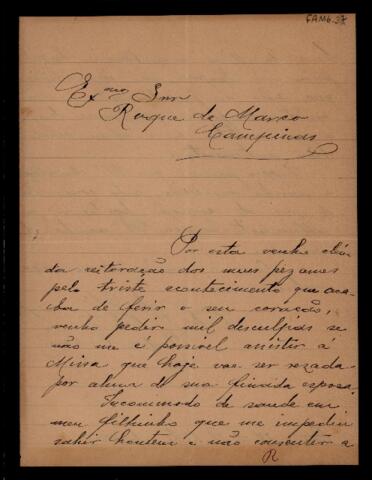 FAMb.37
Exmo Snr
Roque de Marco
Campinas
Por esta venho
da reiteração dos meus pezames
pelo triste acontecimento que aca-
ba de ferir o seu coração,
venho pedir mil desculpas se
não me é possivel assistir á
Missa que hoje vae ser rezada
por alma de sua finada esposa.
Incommodo de saude em
meu filhinho que me impediu
sahir hontem e não consentir a
R